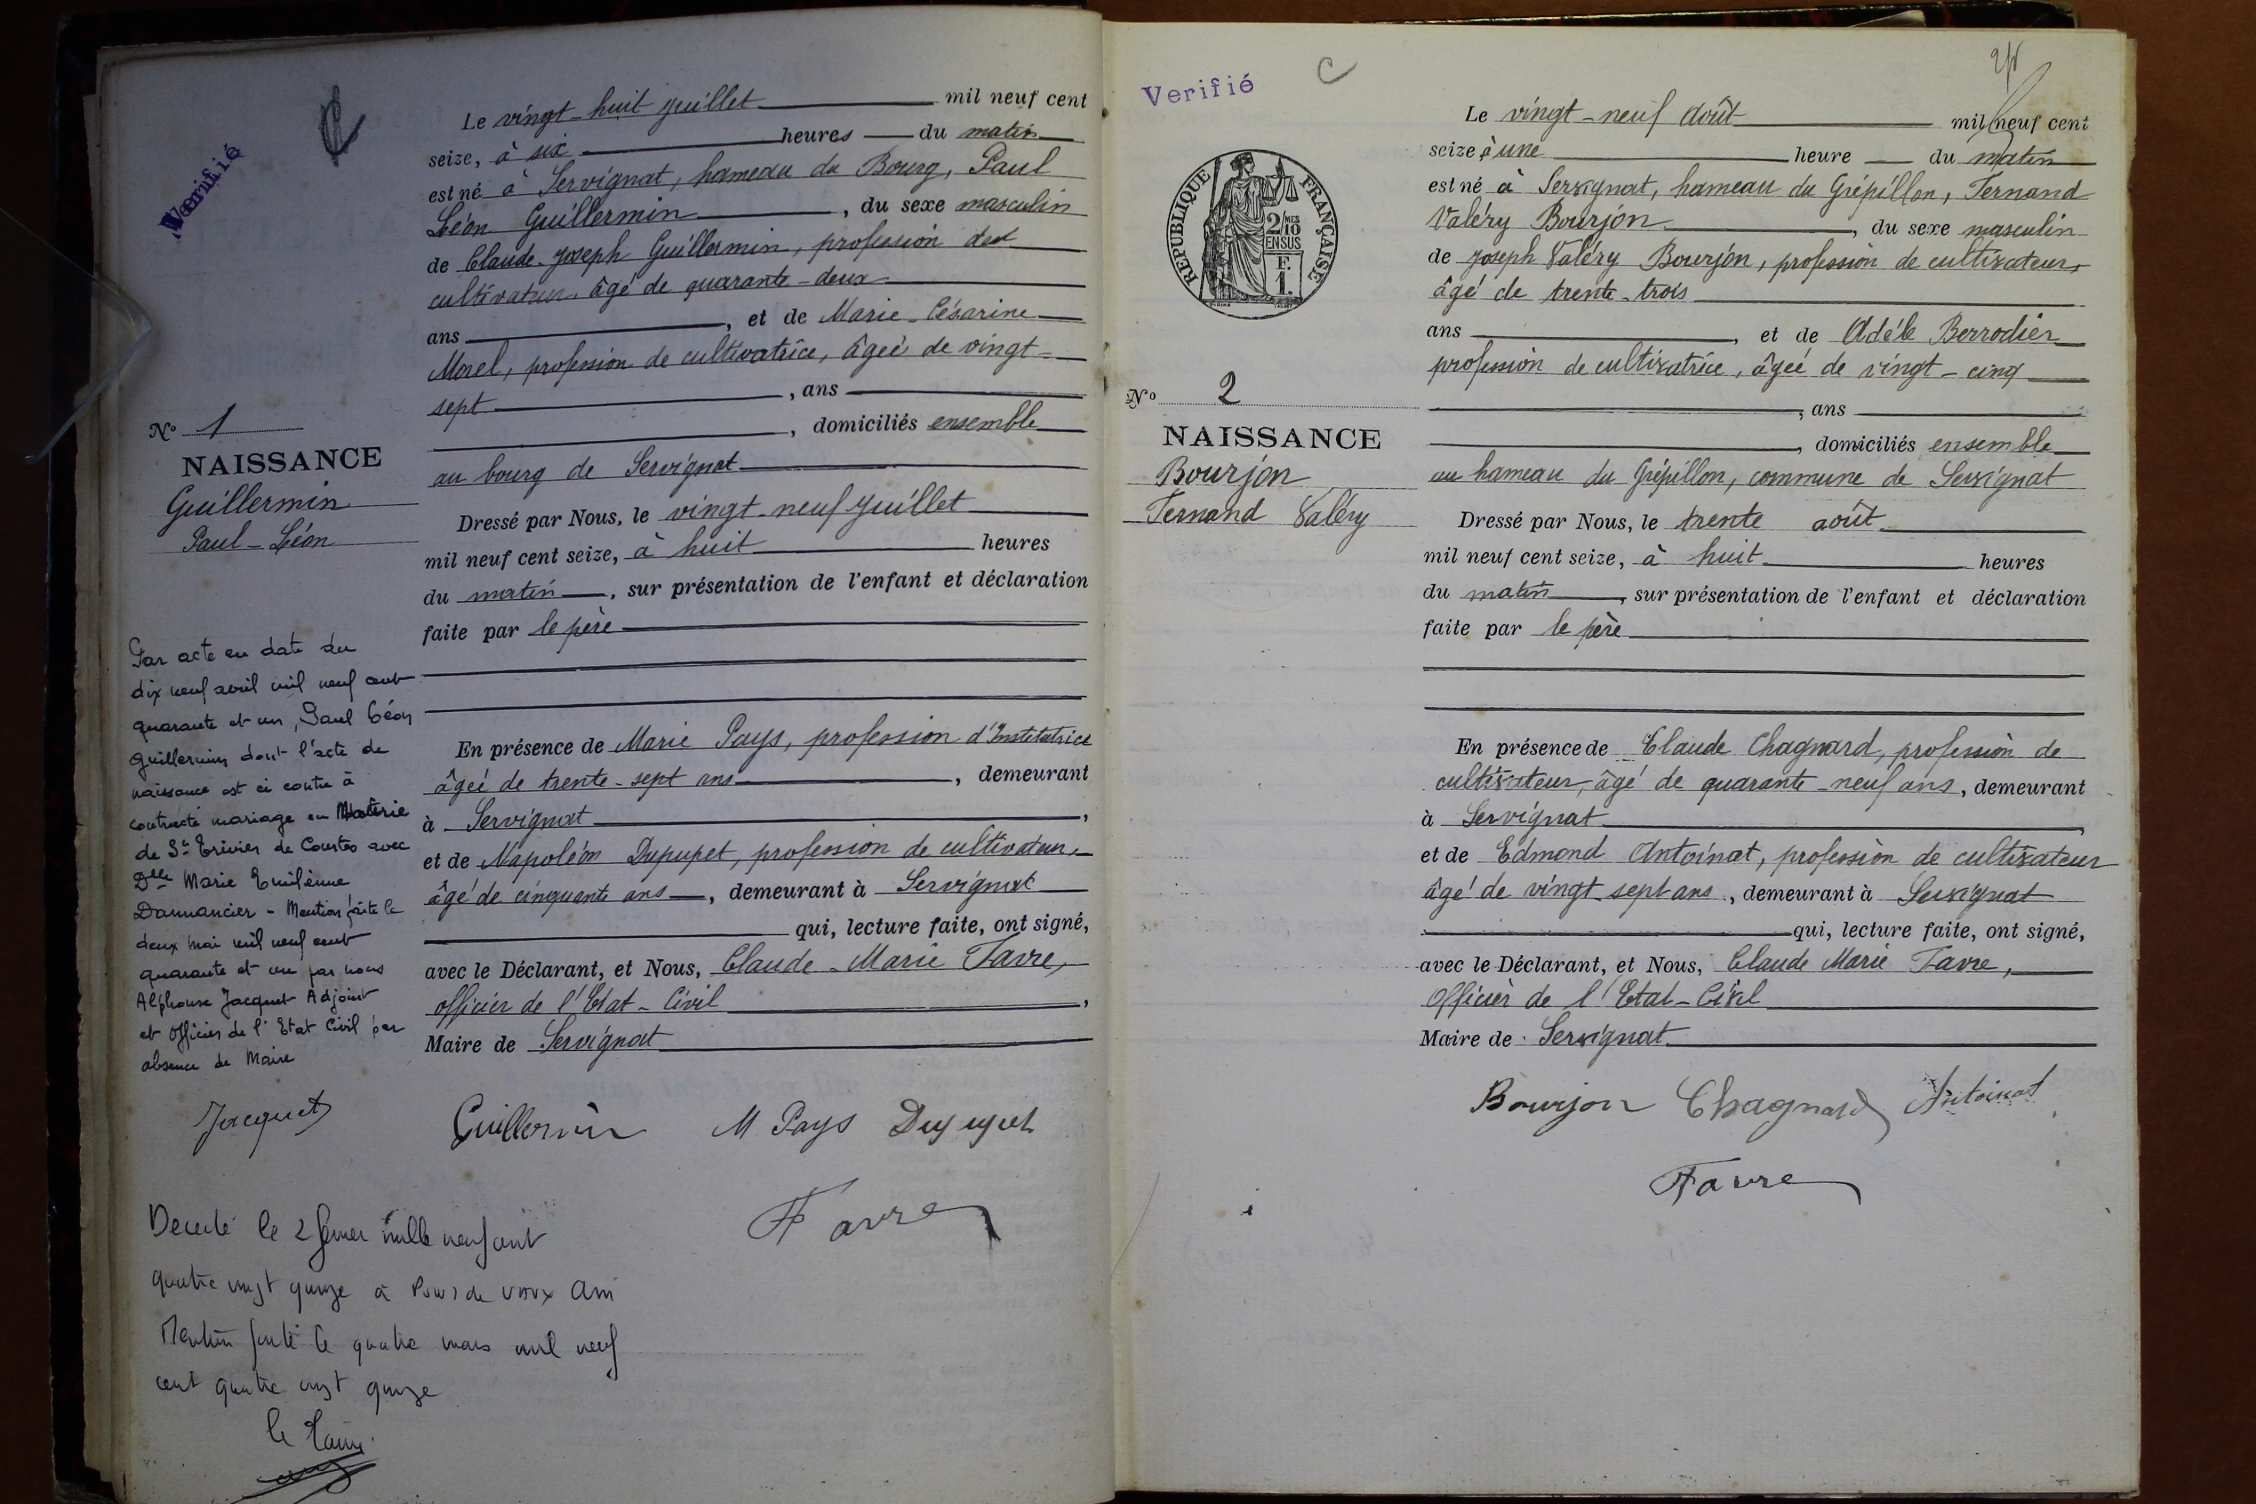 Verifié
C
Le vingt-huit juillet mil neuf cent
seize, à six heures du matin
est né à Servignat, hameau du Bourg, Paul
Léon Guillermin, du sexe masculin
de Claude-Joseph Guillermin, profession de
cultivateur, âgé de quarante-deux
ans, et de Marie-Césarine
Morel, profession de cultivatrice, âgée de vingt-
sept, ans
, domiciliés ensemble
au bourg de Servignat
Dressé par Nous, le vingt-neuf juillet
mil neuf cent seize, à huit heures
du matin, sur présentation de l'enfant et déclaration
faite par le père
En présence de Marie Pays, profession d'Institutrice
âgée de trente-sept ans, demeurant
à Servignat,
et de Napoléon Dupupet, profession de cultivateur,
âgé de cinquante ans, demeurant à Servignat
qui, lecture faite, ont signé,
avec le Déclarant, et Nous, Claude-Marie Favre,
officier de l'Etat-Civil,
Maire de Servignat
Guillermin M Pays Dupupet
Favre
No 1
NAISSANCE
Guillermin
Paul-Léon
Par acte en date du
dix neuf avril mil neuf cent
quarante et un, Paul Léon
Guillermin dont l'acte de
naissance est ci contre à
contracté mariage en Mairie
de St Trivier de Courtes avec
Dlle Marie Emilienne
Dannancier - Mention faite le
deux mai mil neuf cent
quarante et un par nous
Alphonse Jacquet Adjoint
et Officier de l'Etat Civil par
absence de Maire
Jacquet
Décédé le 2 février mille neuf cent
quatre vingt quinze à Pont de Vaux Ain
Mention faite le quatre mars mil neuf
cent quatre vingt quinze
le Maire
Verifié
C
RÉPUBLIQUE FRANÇAISE
2/10 MES
EN SUS
F.
1.
Le vingt-neuf Août mil neuf cent
seize à une heure du matin
est né à Servignat, hameau du Grépillon, Fernand
Valéry Bourjon, du sexe masculin
de Joseph Valéry Bourjon, profession de cultivateur,
âgé de trente-trois
ans, et de Adèle Berrodier
profession de cultivatrice, âgée de vingt-cinq
, ans
, domiciliés ensemble
au hameau du Grépillon, commune de Servignat
Dressé par Nous, le trente août
mil neuf cent seize, à huit heures
du matin, sur présentation de l'enfant et déclaration
faite par le père
En présence de Claude Chagnard, profession de
cultivateur, âgé de quarante-neuf ans, demeurant
à Servignat,
et de Edmond Antoinat, profession de cultivateur
âgé de vingt-sept ans, demeurant à Servignat
qui, lecture faite, ont signé,
avec le Déclarant, et Nous, Claude Marie Favre,
Officier de l'Etat-Civil
Maire de Servignat
Bourjon Chagnard Antoinat
Favre
No 2
NAISSANCE
Bourjon
Fernand Valéry